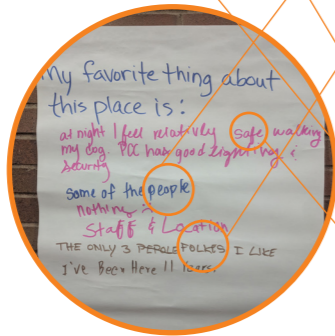 My favorite thing about
this place is:
at night I feel relatively safe walking
my dog. POC has good lighting &
security
some of the people
nothing :-
Staff & Location
THE ONLY 3 PEPOLE FOLKES I LIKE
I've Been Here 11 Years.